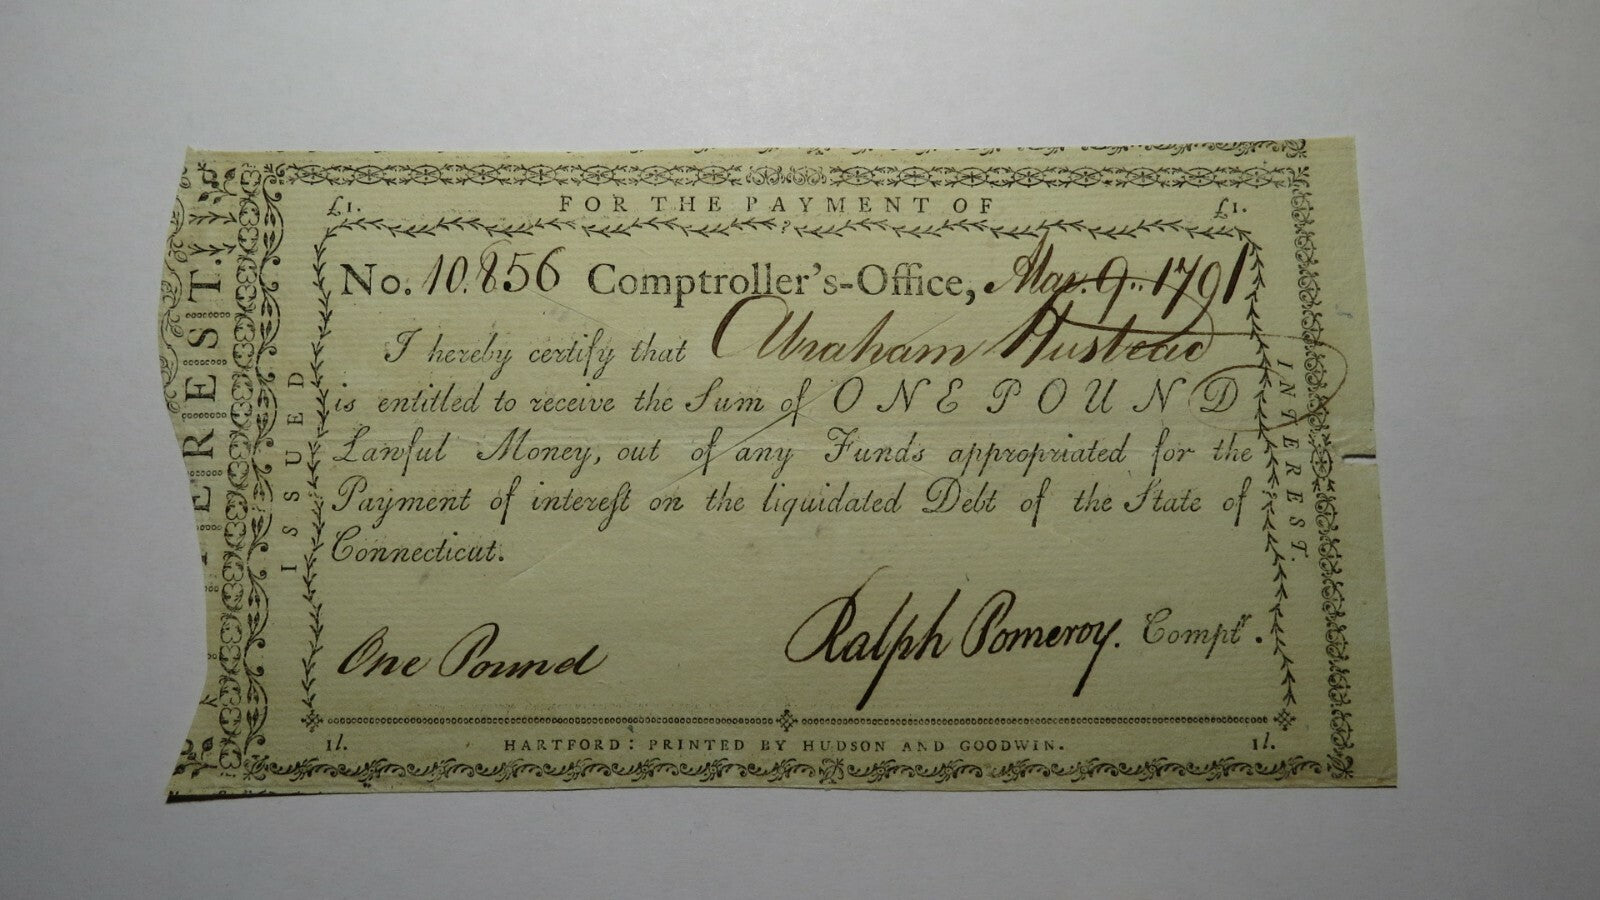 FOR THE PAYMENT OF
£1. £1.
No. 10.856 Comptroller's-Office, Mar. 9.. 1791
I hereby certify that Abraham Hustead
is entitled to receive the Sum of ONE POUND
Lawful Money, out of any Funds appropriated for the
Payment of intereſt on the liquidated Debt of the State of
Connecticut.
One Pound Ralph Pomeroy. Comptr.
1l. HARTFORD: PRINTED BY HUDSON AND GOODWIN. 1l.
ISSUED
INTEREST.
EREST.